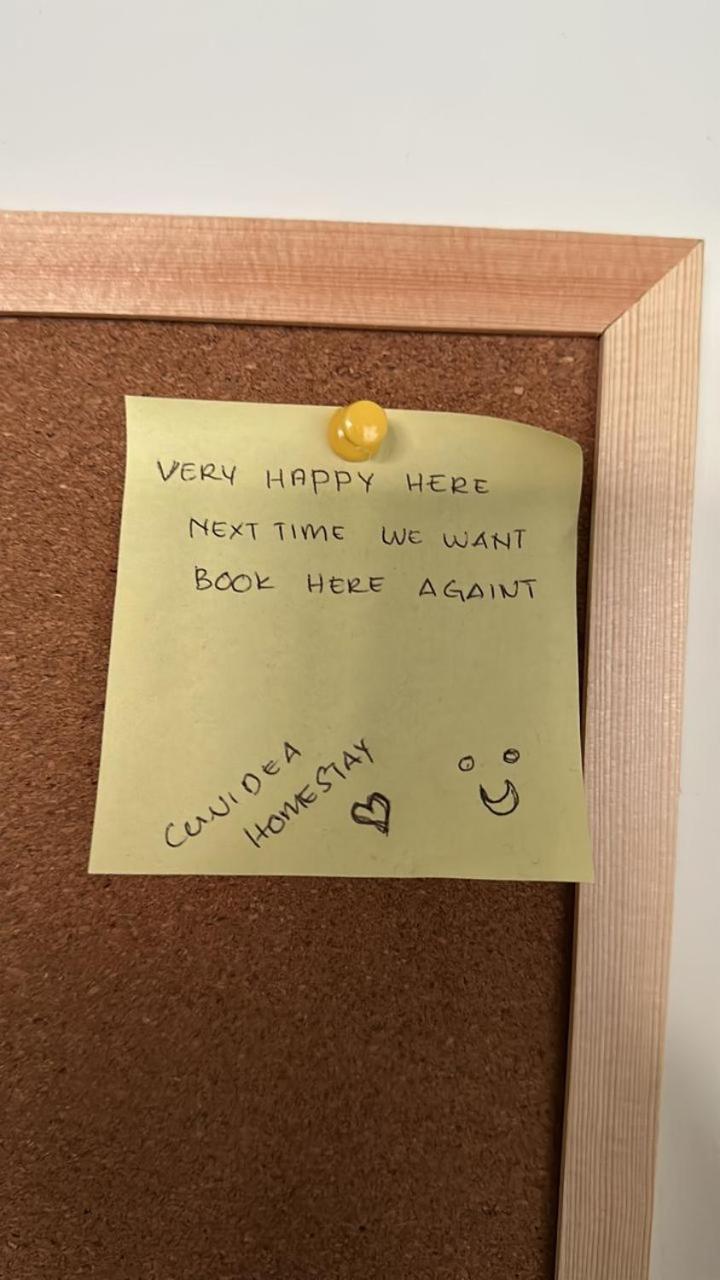 VERY HAPPY HERE
NEXT TIME WE WANT
BOOK HERE AGAINT
HOMESTAY